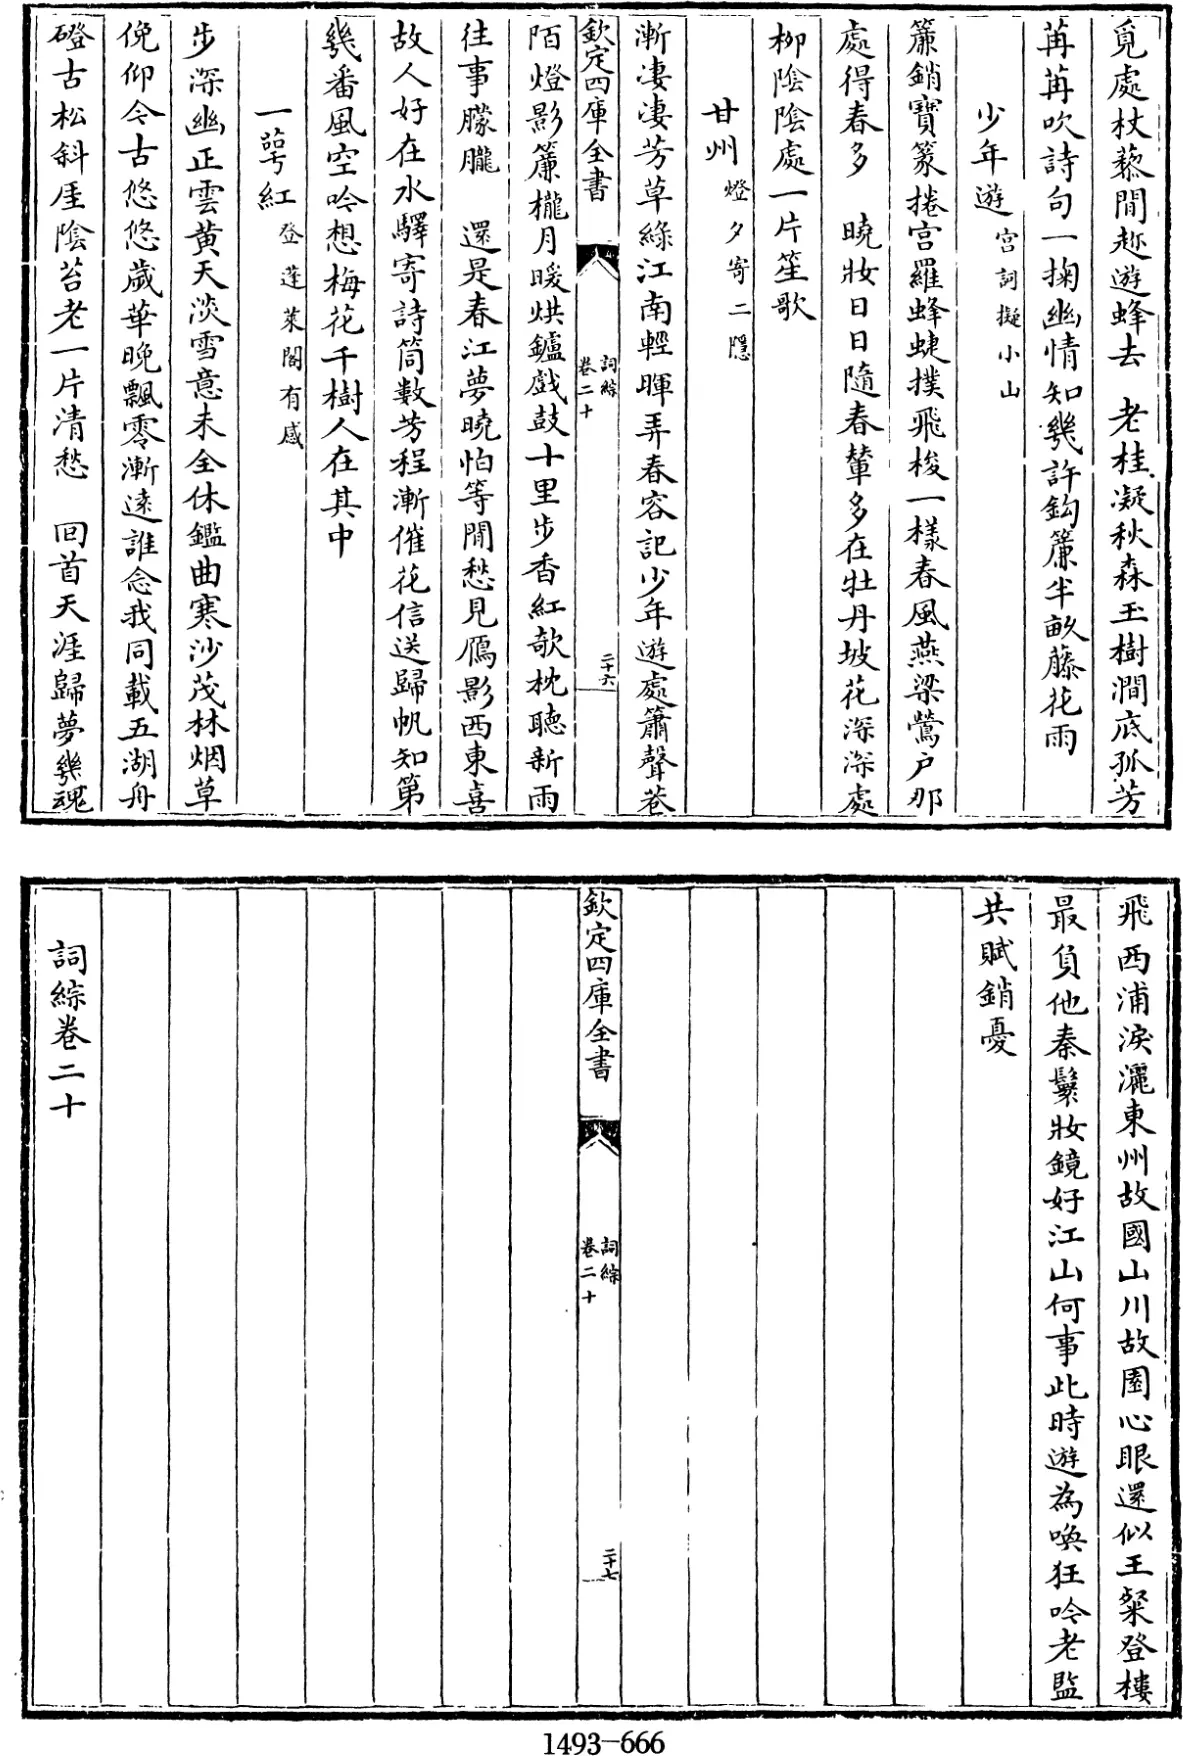 覓處杖藜閒趂遊蜂去　老桂凝秋森玉樹澗底孤芳
苒苒吹詩句一掬幽情知幾許鈎簾半畝藤花雨
少年遊 宫詞擬小山
簾銷寶篆捲宫羅蜂蜨撲飛梭一樣春風燕梁鶯户那
處得春多　曉妝日日隨春輦多在牡丹坡花深深處
栁陰陰處一片笙歌
甘州 燈夕寄二隱
漸凄凄芳草綠江南輕暉弄春容記少年遊處簫聲巷
欽定四庫全書
詞綜
卷二十
二十六
陌燈影簾櫳月暖烘鑪戲鼓十里步香紅欹枕聽新雨
往事朦朧　還是春江夢曉怕等閒愁見鴈影西東喜
故人好在水驛寄詩筒數芳程漸催花信送歸帆知第
幾番風空吟想梅花千樹人在其中
一萼紅 登蓬萊閣有感
步深幽正雲黄天淡雪意未全休鑑曲寒沙茂林烟草
俛仰今古悠悠歲華晚飄零漸逺誰念我同載五湖舟
磴古松斜厓陰苔老一片清愁　回首天涯歸夢幾魂
飛西浦淚灑東州故國山川故園心眼還似王粲登樓
最負他秦鬟妝鏡好江山何事此時遊為喚狂吟老監
共賦銷憂
欽定四庫全書
詞綜
卷二十
二十七
詞綜卷二十
1493-666